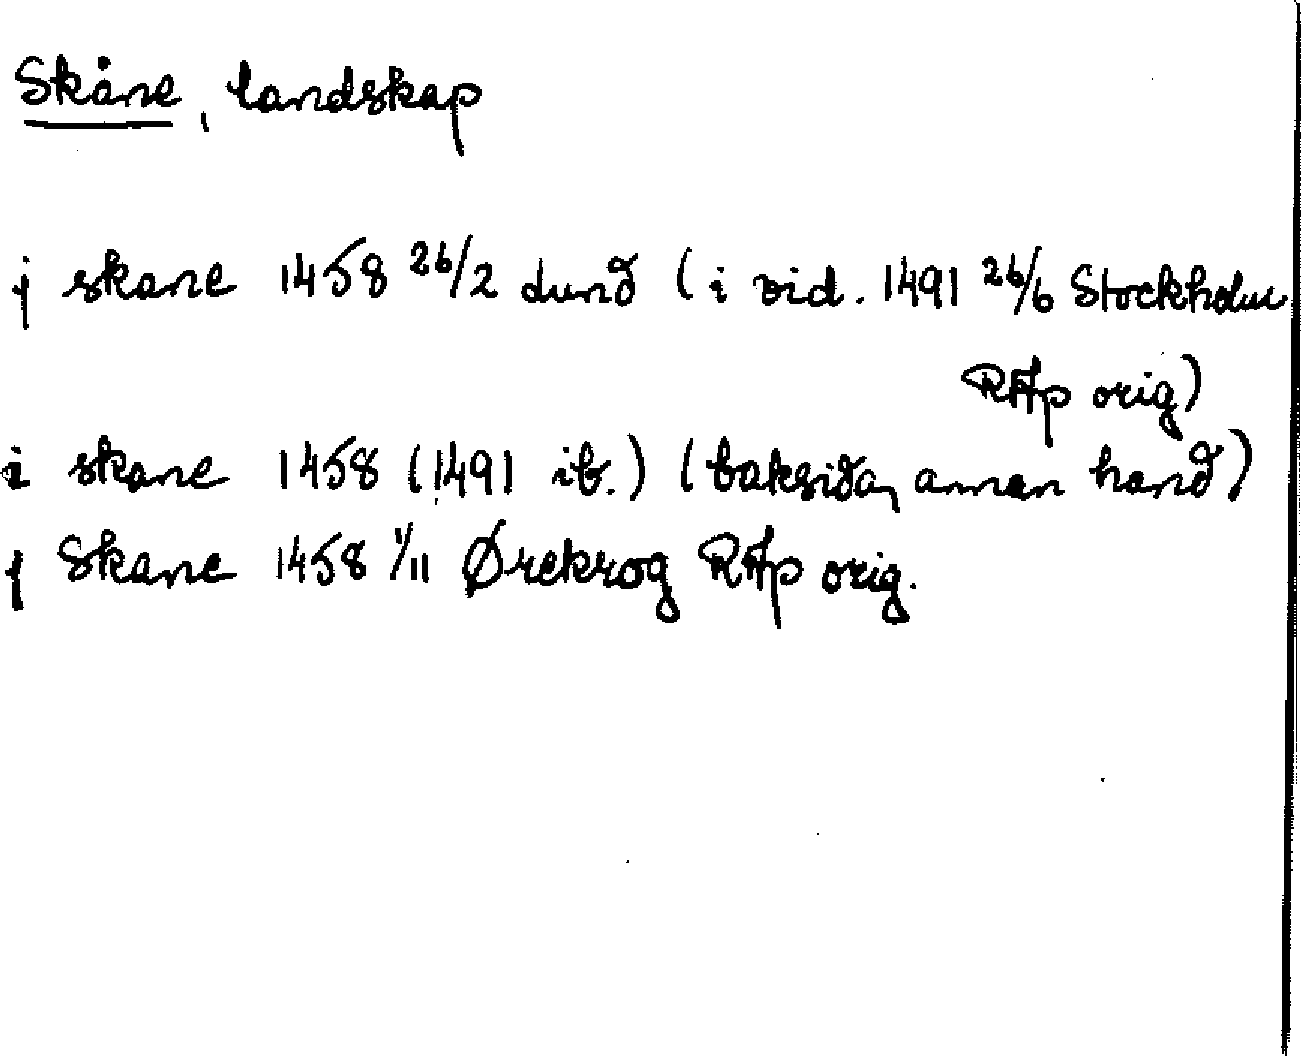 Skåne, landskap
j skane 1458 26/2 Lund (i vid. 1491 26/6 Stockholm
RAp orig)
i skane 1458 (1491 ib.) (baksidan, annan hand)
j Skane 1458 1/11 Ørekrog RAp orig.